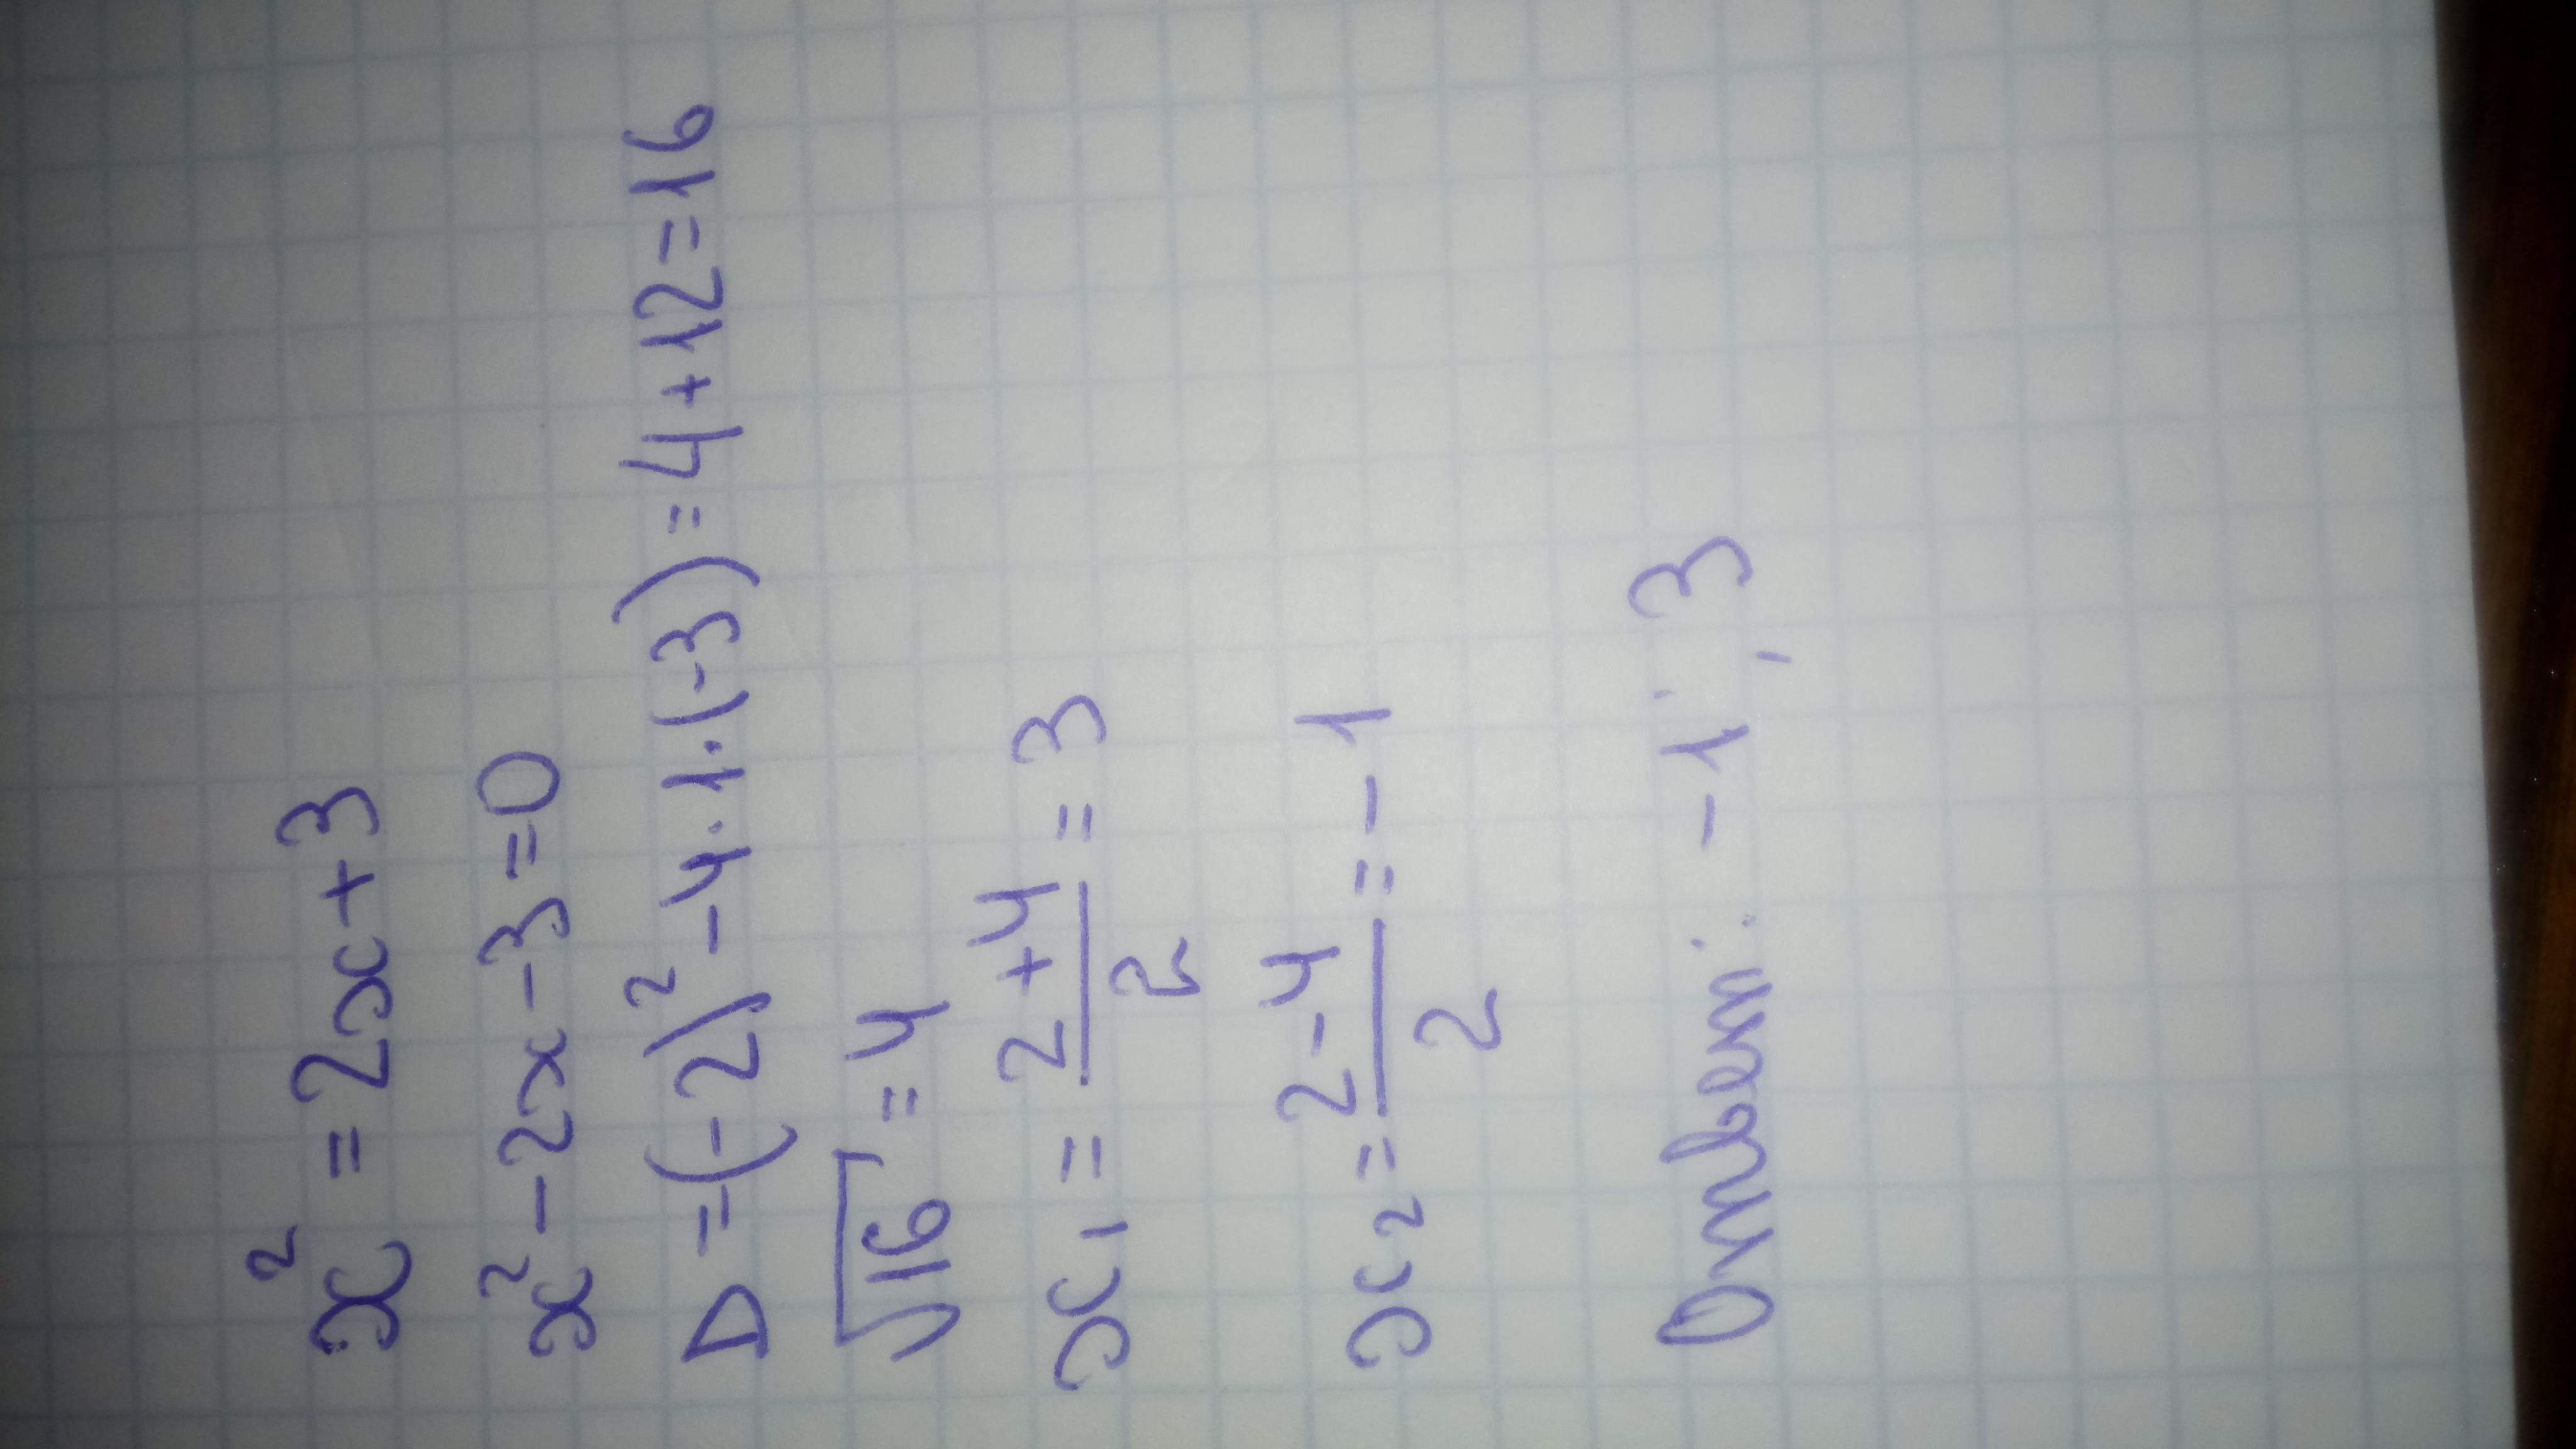 x² = 2x+3
x² - 2x - 3 = 0
D = (-2)² - 4·1·(-3) = 4 + 12 = 16
√16 = 4
x₁ = (2+4)/2 = 3
x₂ = (2-4)/2 = -1
Ответ: -1; 3